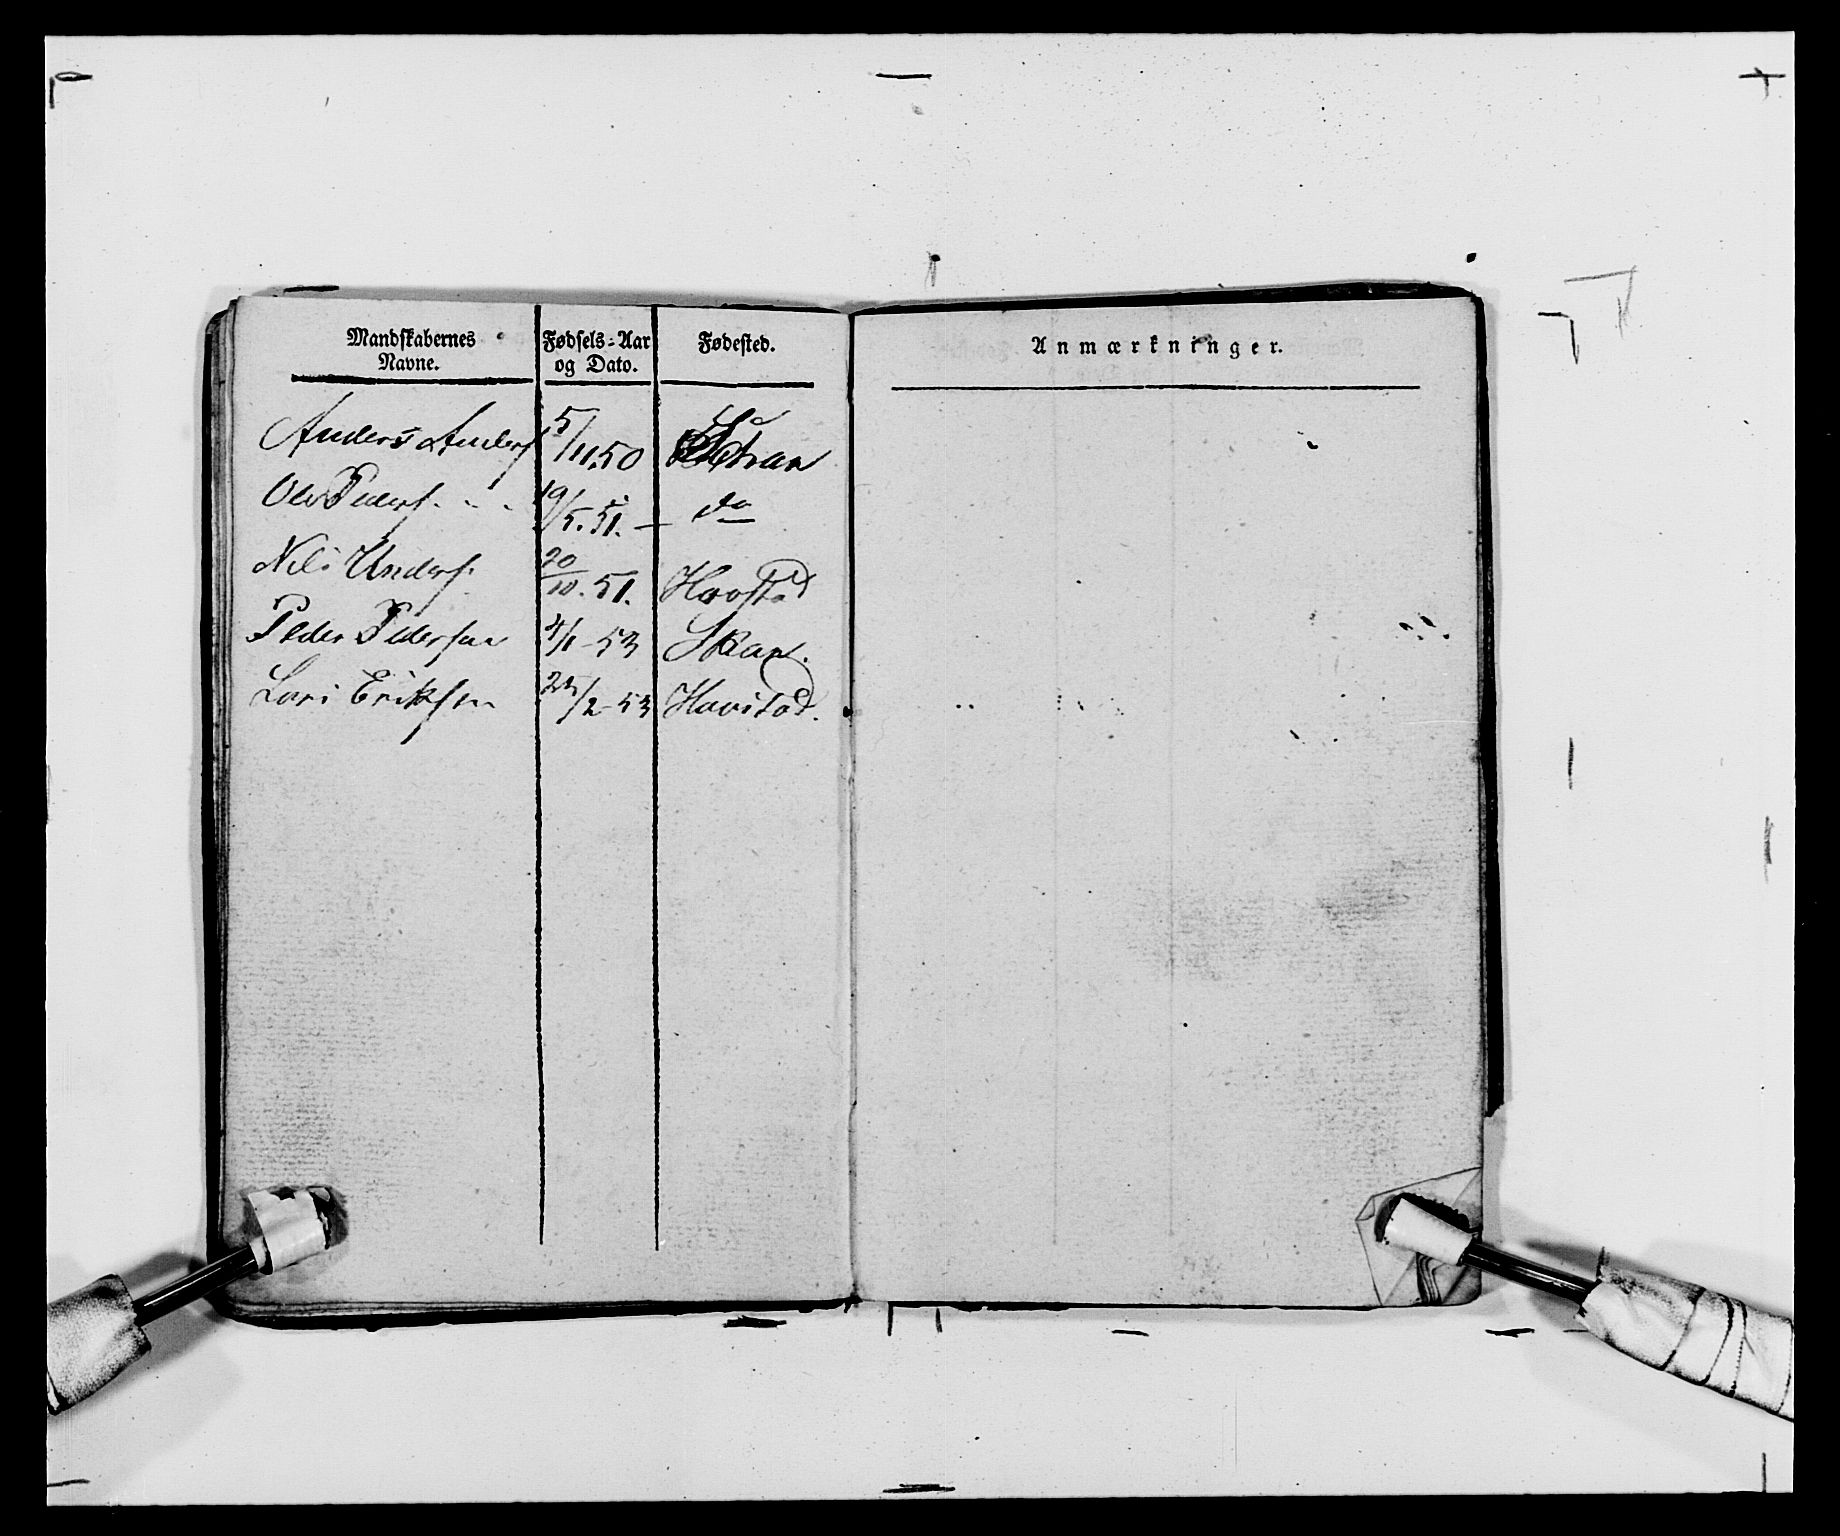 Mandskabernes Navne.
Fødsels-Aar og Dato.
Fødested.
Anmærkninger.
Anders Anders 5/11.50
Ole Peders. 19/5.51. — do
Nils Anders. 20/10.51. Havstad
Peder Pedersen 4/1-53 Skar.
Lars Eriksen 23/2-53 Havstad.